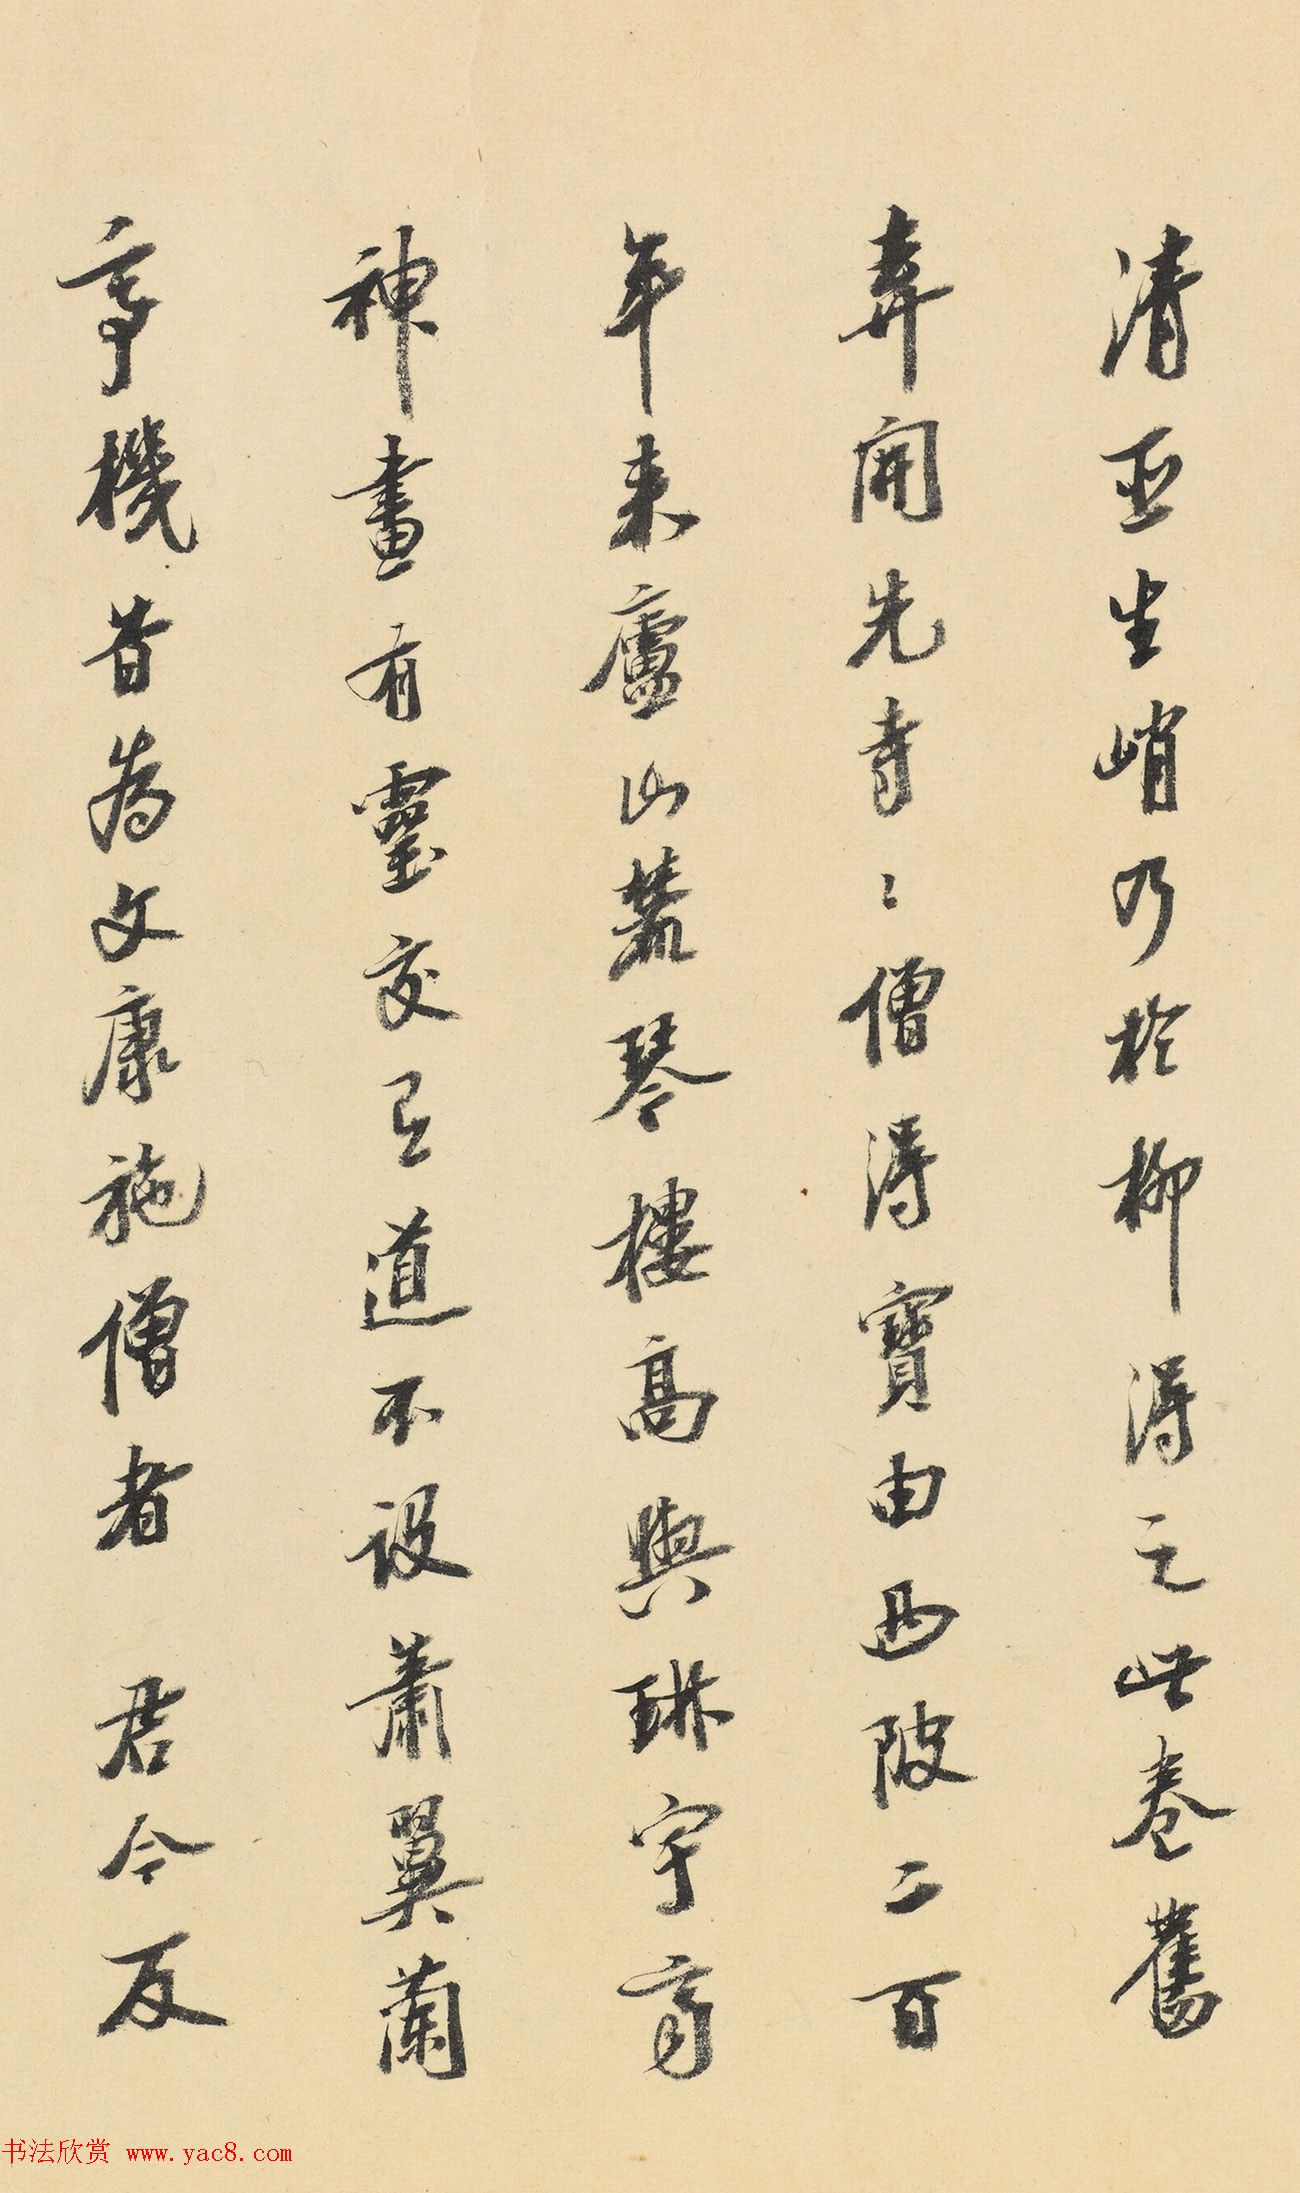 清玉生峭乃於柳得之此卷舊
弆開先寺〻僧得寶由西陂二百
年来廬山荒琴樓高與琳宇育
神畫有靈交已道不設蕭翼蘭
亭機昔為文康施僧者 君今反
书法欣赏 www.yac8.com